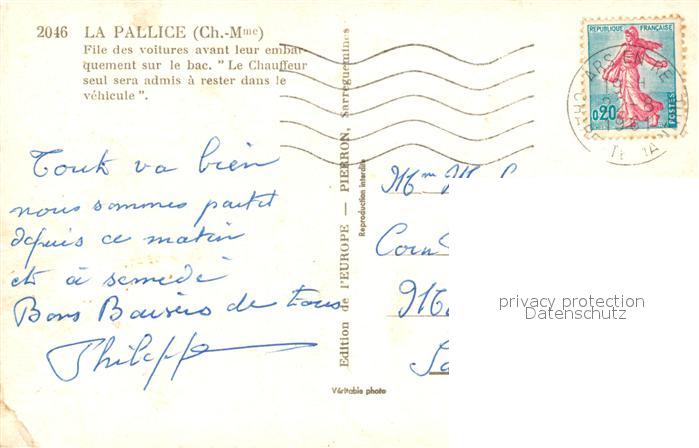 2046 LA PALLICE (Ch.-Mme)
File des voitures avant leur embar-
quement sur le bac. " Le Chauffeur
seul sera admis à rester dans le
véhicule ".
REPUBLIQUE FRANÇAISE
0,20
POSTES
ARS EN RE
Tout va bien
nous sommes partit
depuis ce matin
et à samedi
Bons Baisers de tous
Philippe
Edition de l'EUROPE — PIERRON, Sarreguemines
Reproduction interdite
Véritable photo
privacy protection
Datenschutz